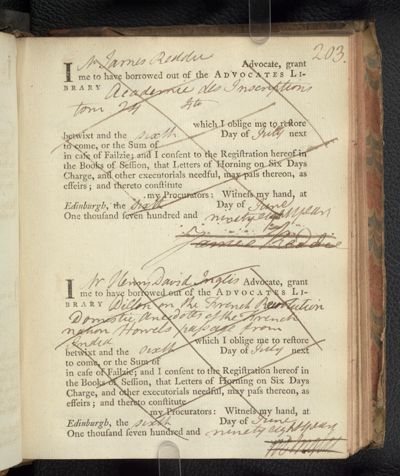 203.
I Mr James Reddie Advocate, grant
me to have borrowed out of the ADVOCATES LI-
BRARY Academie des Inscriptions
tom 24 4to
which I oblige me to restore
betwixt and the sixth Day of July next
to come, or the Sum of
in case of Failzie; and I consent to the Registration hereof in
the Books of Session, that Letters of Horning on Six Days
Charge, and other executorials needful, may pass thereon, as
effeirs; and thereto constitute
my Procurators: Witness my hand, at
Edinburgh, the sixth Day of June
One thousand seven hundred and ninety eight years
James Reddie
I Mr Henry David Inglis Advocate, grant
me to have borrowed out of the ADVOCATES LI-
BRARY on the French Revolution
Domestic Anecdotes of the French
nation Howels passage from
India which I oblige me to restore
betwixt and the sixth Day of July next
to come, or the Sum of
in case of Failzie; and I consent to the Registration hereof in
the Books of Session, that Letters of Horning on Six Days
Charge, and other executorials needful, may pass thereon, as
effeirs; and thereto constitute
my Procurators: Witness my hand, at
Edinburgh, the sixth Day of June
One thousand seven hundred and ninety eight years